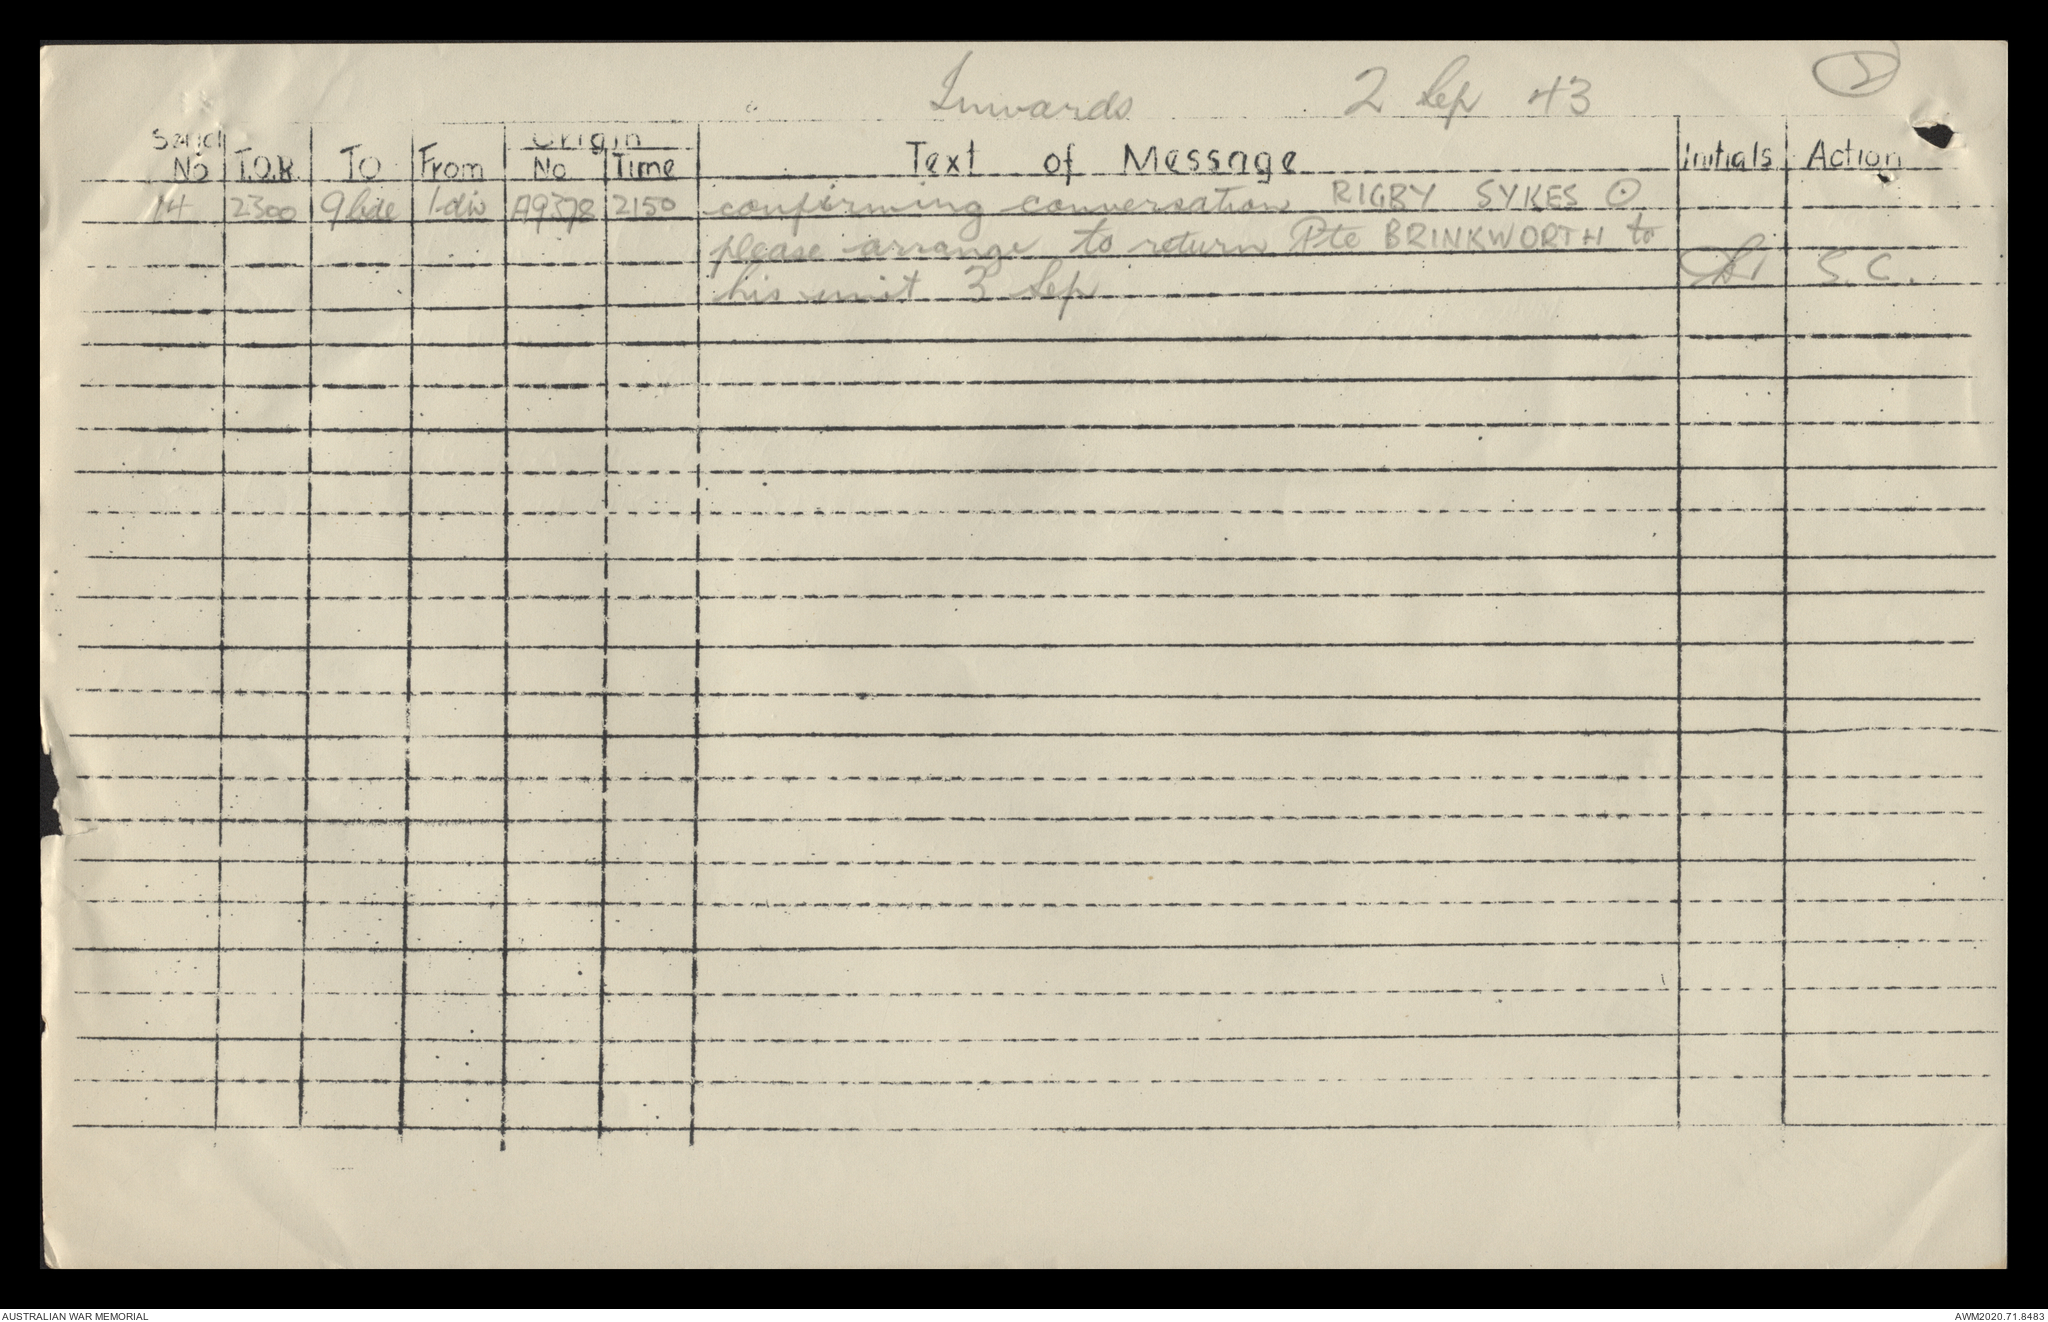 Inwards 2 Sep 43
Serial No T.O.R. To From Origin No Time Text of Message Initials Action
14 2300 9 bde 1 div A9378 2150 confirming conversation RIGBY SYKES ⊙
please arrange to return Pte BRINKWORTH to
his unit 3 Sep S.C.
AUSTRALIAN WAR MEMORIAL AWM2020.71.8483